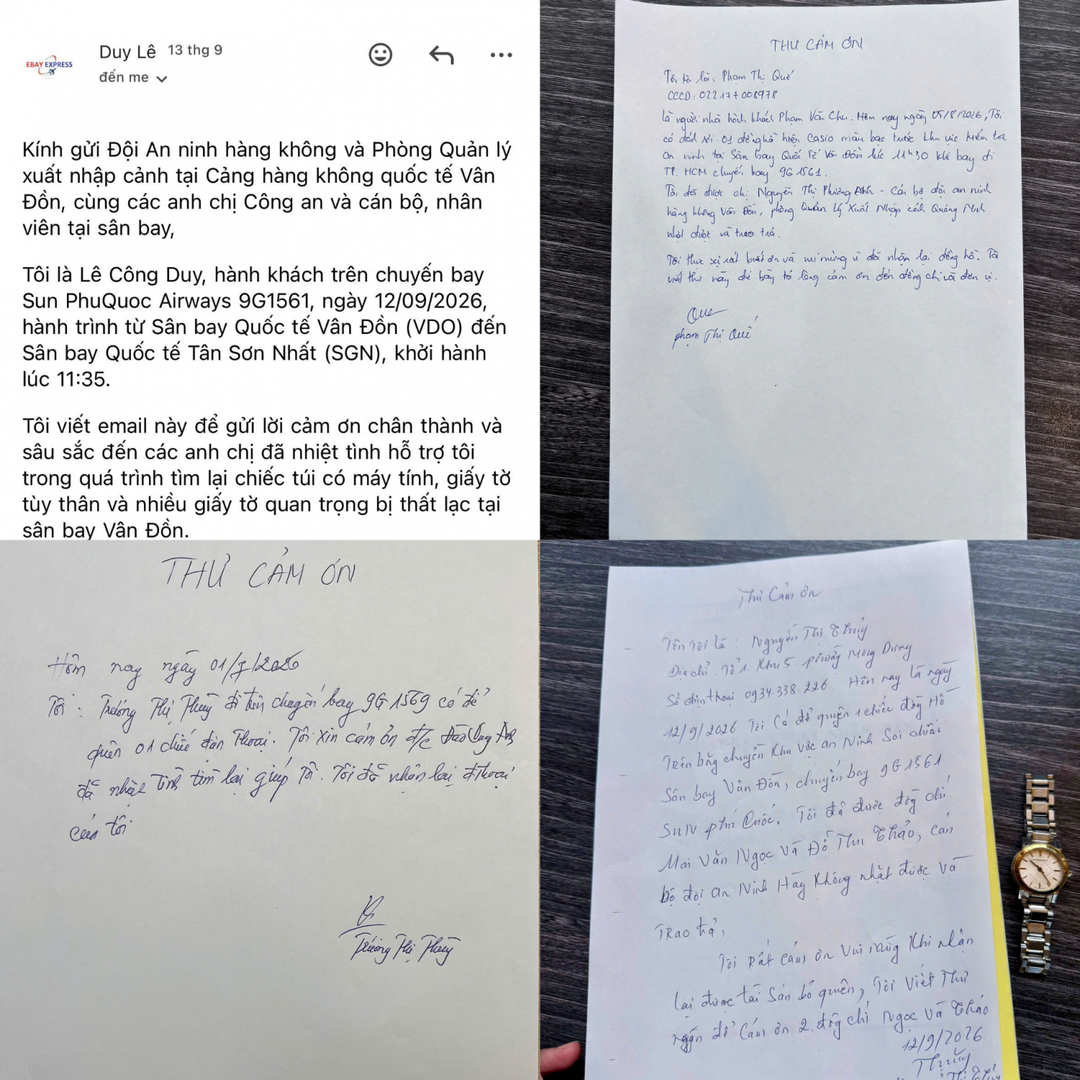 EBAY EXPRESS
Duy Lê 13 thg 9
đến me
Kính gửi Đội An ninh hàng không và Phòng Quản lý
xuất nhập cảnh tại Cảng hàng không quốc tế Vân
Đồn, cùng các anh chị Công an và cán bộ, nhân
viên tại sân bay,
Tôi là Lê Công Duy, hành khách trên chuyến bay
Sun PhuQuoc Airways 9G1561, ngày 12/09/2026,
hành trình từ Sân bay Quốc tế Vân Đồn (VDO) đến
Sân bay Quốc tế Tân Sơn Nhất (SGN), khởi hành
lúc 11:35.
Tôi viết email này để gửi lời cảm ơn chân thành và
sâu sắc đến các anh chị đã nhiệt tình hỗ trợ tôi
trong quá trình tìm lại chiếc túi có máy tính, giấy tờ
tùy thân và nhiều giấy tờ quan trọng bị thất lạc tại
sân bay Vân Đồn.
THƯ CẢM ƠN
Tôi tên là: Phạm Thị Quế
CCCD: 022177008978
Là người nhà hành khách Phạm Văn Chu. Hôm nay ngày 05/8/2026, Tôi
có để rơi 01 đồng hồ hiệu Casio màu bạc trước khu vực kiểm tra
an ninh tại Sân bay Quốc Tế Vân Đồn lúc 11h30 khi bay đi
TP. HCM chuyến bay 9G1561.
Tôi đã được chị Nguyễn Thị Phương Anh - Cán bộ đội an ninh
hàng không Vân Đồn, phòng Quản Lý Xuất Nhập cảnh Quảng Ninh
nhặt được và trao trả.
Tôi thực sự rất biết ơn và vui mừng vì đã nhận lại đồng hồ. Tôi
viết thư này để bày tỏ lòng cảm ơn đến đồng chí và đơn vị.
Que
phạm Thị Quế
THƯ CẢM ƠN
Hôm nay ngày 01/7/2026
Tôi: Trương Thị Thủy đi trên chuyến bay 9G1569 có để
quên 01 chiếc điện thoại. Tôi xin cảm ơn đ/c Đào
đã nhiệt tình tìm lại giúp tôi. Tôi đã nhận lại đ thoại
của tôi
Trương Thị Thủy
Thư Cảm ơn
Tên tôi là: Nguyễn Thị Thủy
Địa chỉ: Tổ 1 Khu 5 phường Mông Dương
Số điện thoại 0934.338.226 Hôm nay là ngày
12/9/2026 Tôi Có để quên 1 chiếc đồng Hồ
Trên băng chuyền Khu vực an Ninh Soi chiếu
Sân bay Vân Đồn, chuyến bay 9G1561
SUN phú Quốc. Tôi đã được đồng chí
Mai Văn Ngọc Và Đỗ Thu Thảo, cán
bộ đội an Ninh Hàng Không nhặt được và
Trao trả,
Tôi Rất cảm ơn Vui mừng Khi nhận
lại được tài Sản bỏ quên, Tôi Viết Thư
ngắn để Cảm ơn 2 đồng chí Ngọc Và Thảo
12/9/2026.
Thủy